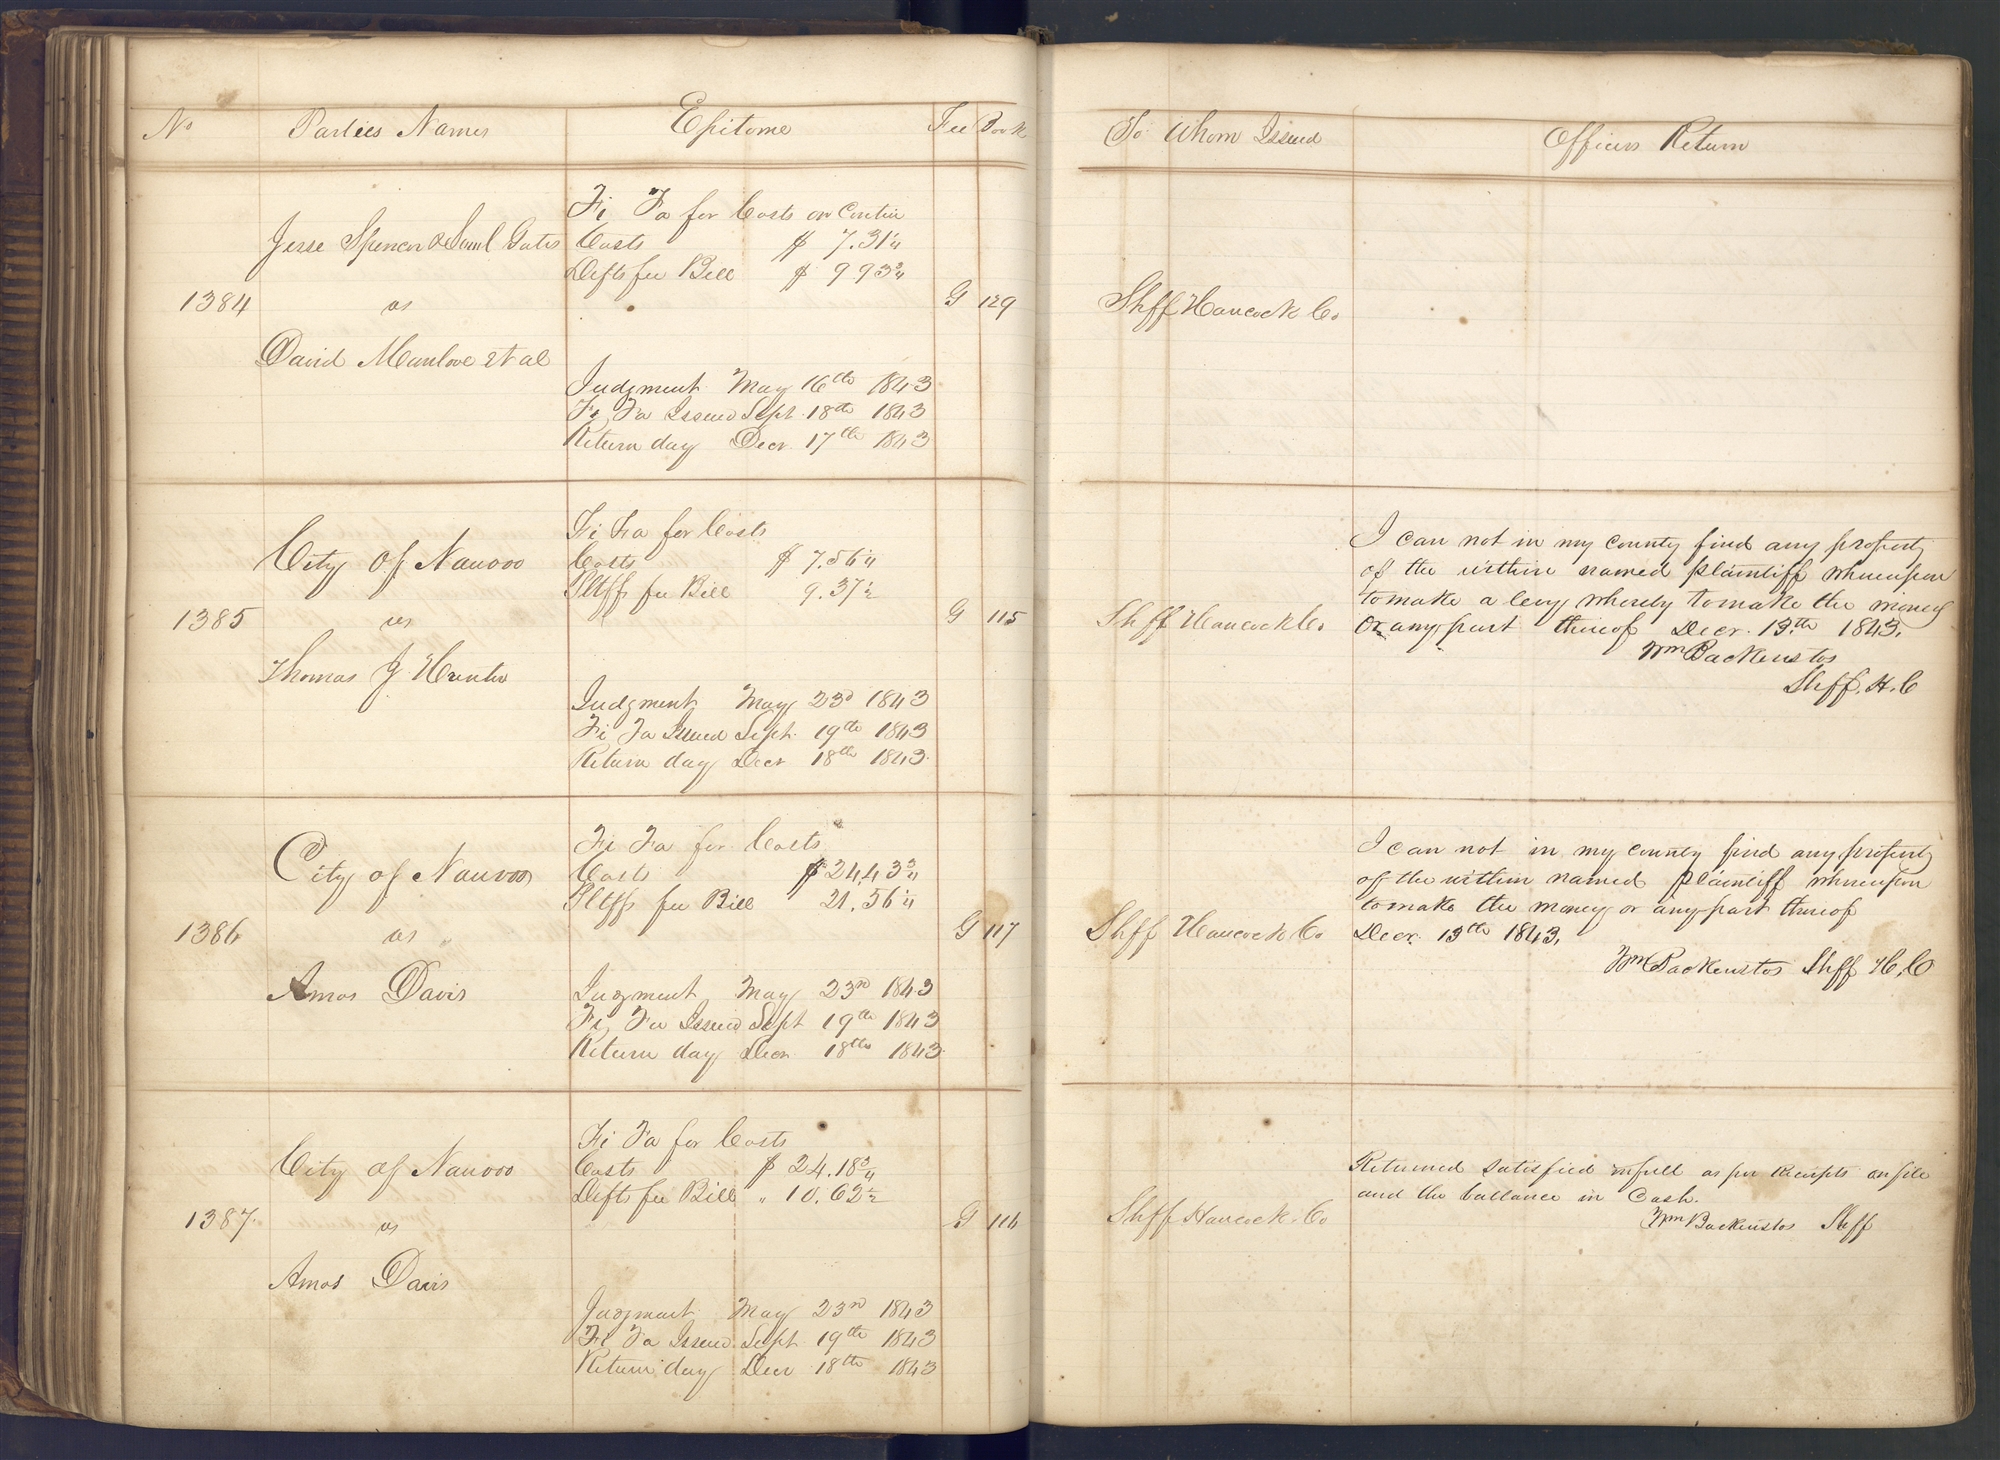 No Parties Names Epitome Fee Book To Whom Issued Officers Return
Fi Fa for Costs on Contin
Jesse Spencer & Saml Gates Costs $ 7.31 1/4
Defts fee Bill $ 9 93 3/4
1384 vs G 129 Shff Hancock Co
David Manlove et al
Judgment May 16th 1843
Fi Fa Issued Sept. 18th 1843
Return day Decr. 17th 1843
Fi Fa for Costs
City of Nauvoo Costs $ 7.56 1/4
Pltffs fee Bill 9.37 1/2
1385 vs G 115 Shff Hancock Co.
Thomas J Hunter
Judgment May 23d 1843
Fi Fa Issued Sept. 19th 1843
Return day Decr 18th 1843.
I can not in my county find any property
of the within named plaintiff whereupon
to make a levy whereby to make the money
or any part thereof Decr. 13th 1843.
Wm Backenstos
Shff. H. C
Fi Fa for Costs
City of Nauvoo Costs $ 24,43 3/4
Pltffs fee Bill 21,56 1/4
1386 vs G 117 Shff Hancock Co
Amos Davis Judgment May 23rd 1843
Fi Fa Issued Sept 19th 1843
Return day Decr 18th 1843.
I can not in my county find any property
of the within named plaintiff whereupon
to make the money or any part thereof
Decr. 13th 1843.
Wm Backenstos Shff H. C
Fi Fa for Costs
City of Nauvoo Costs $ 24.18 3/4
Defts fee Bill " 10.62 1/2
1387. vs G 116 Shff Hancock. Co
Amos Davis
Judgment May 23rd 1843
Fi Fa Issued. Sept. 19th 1843
Return day Decr 18th 1843
Returned satisfied in full as per Receipts on file
and the ballance in Cash.
Wm Backenstos Shff